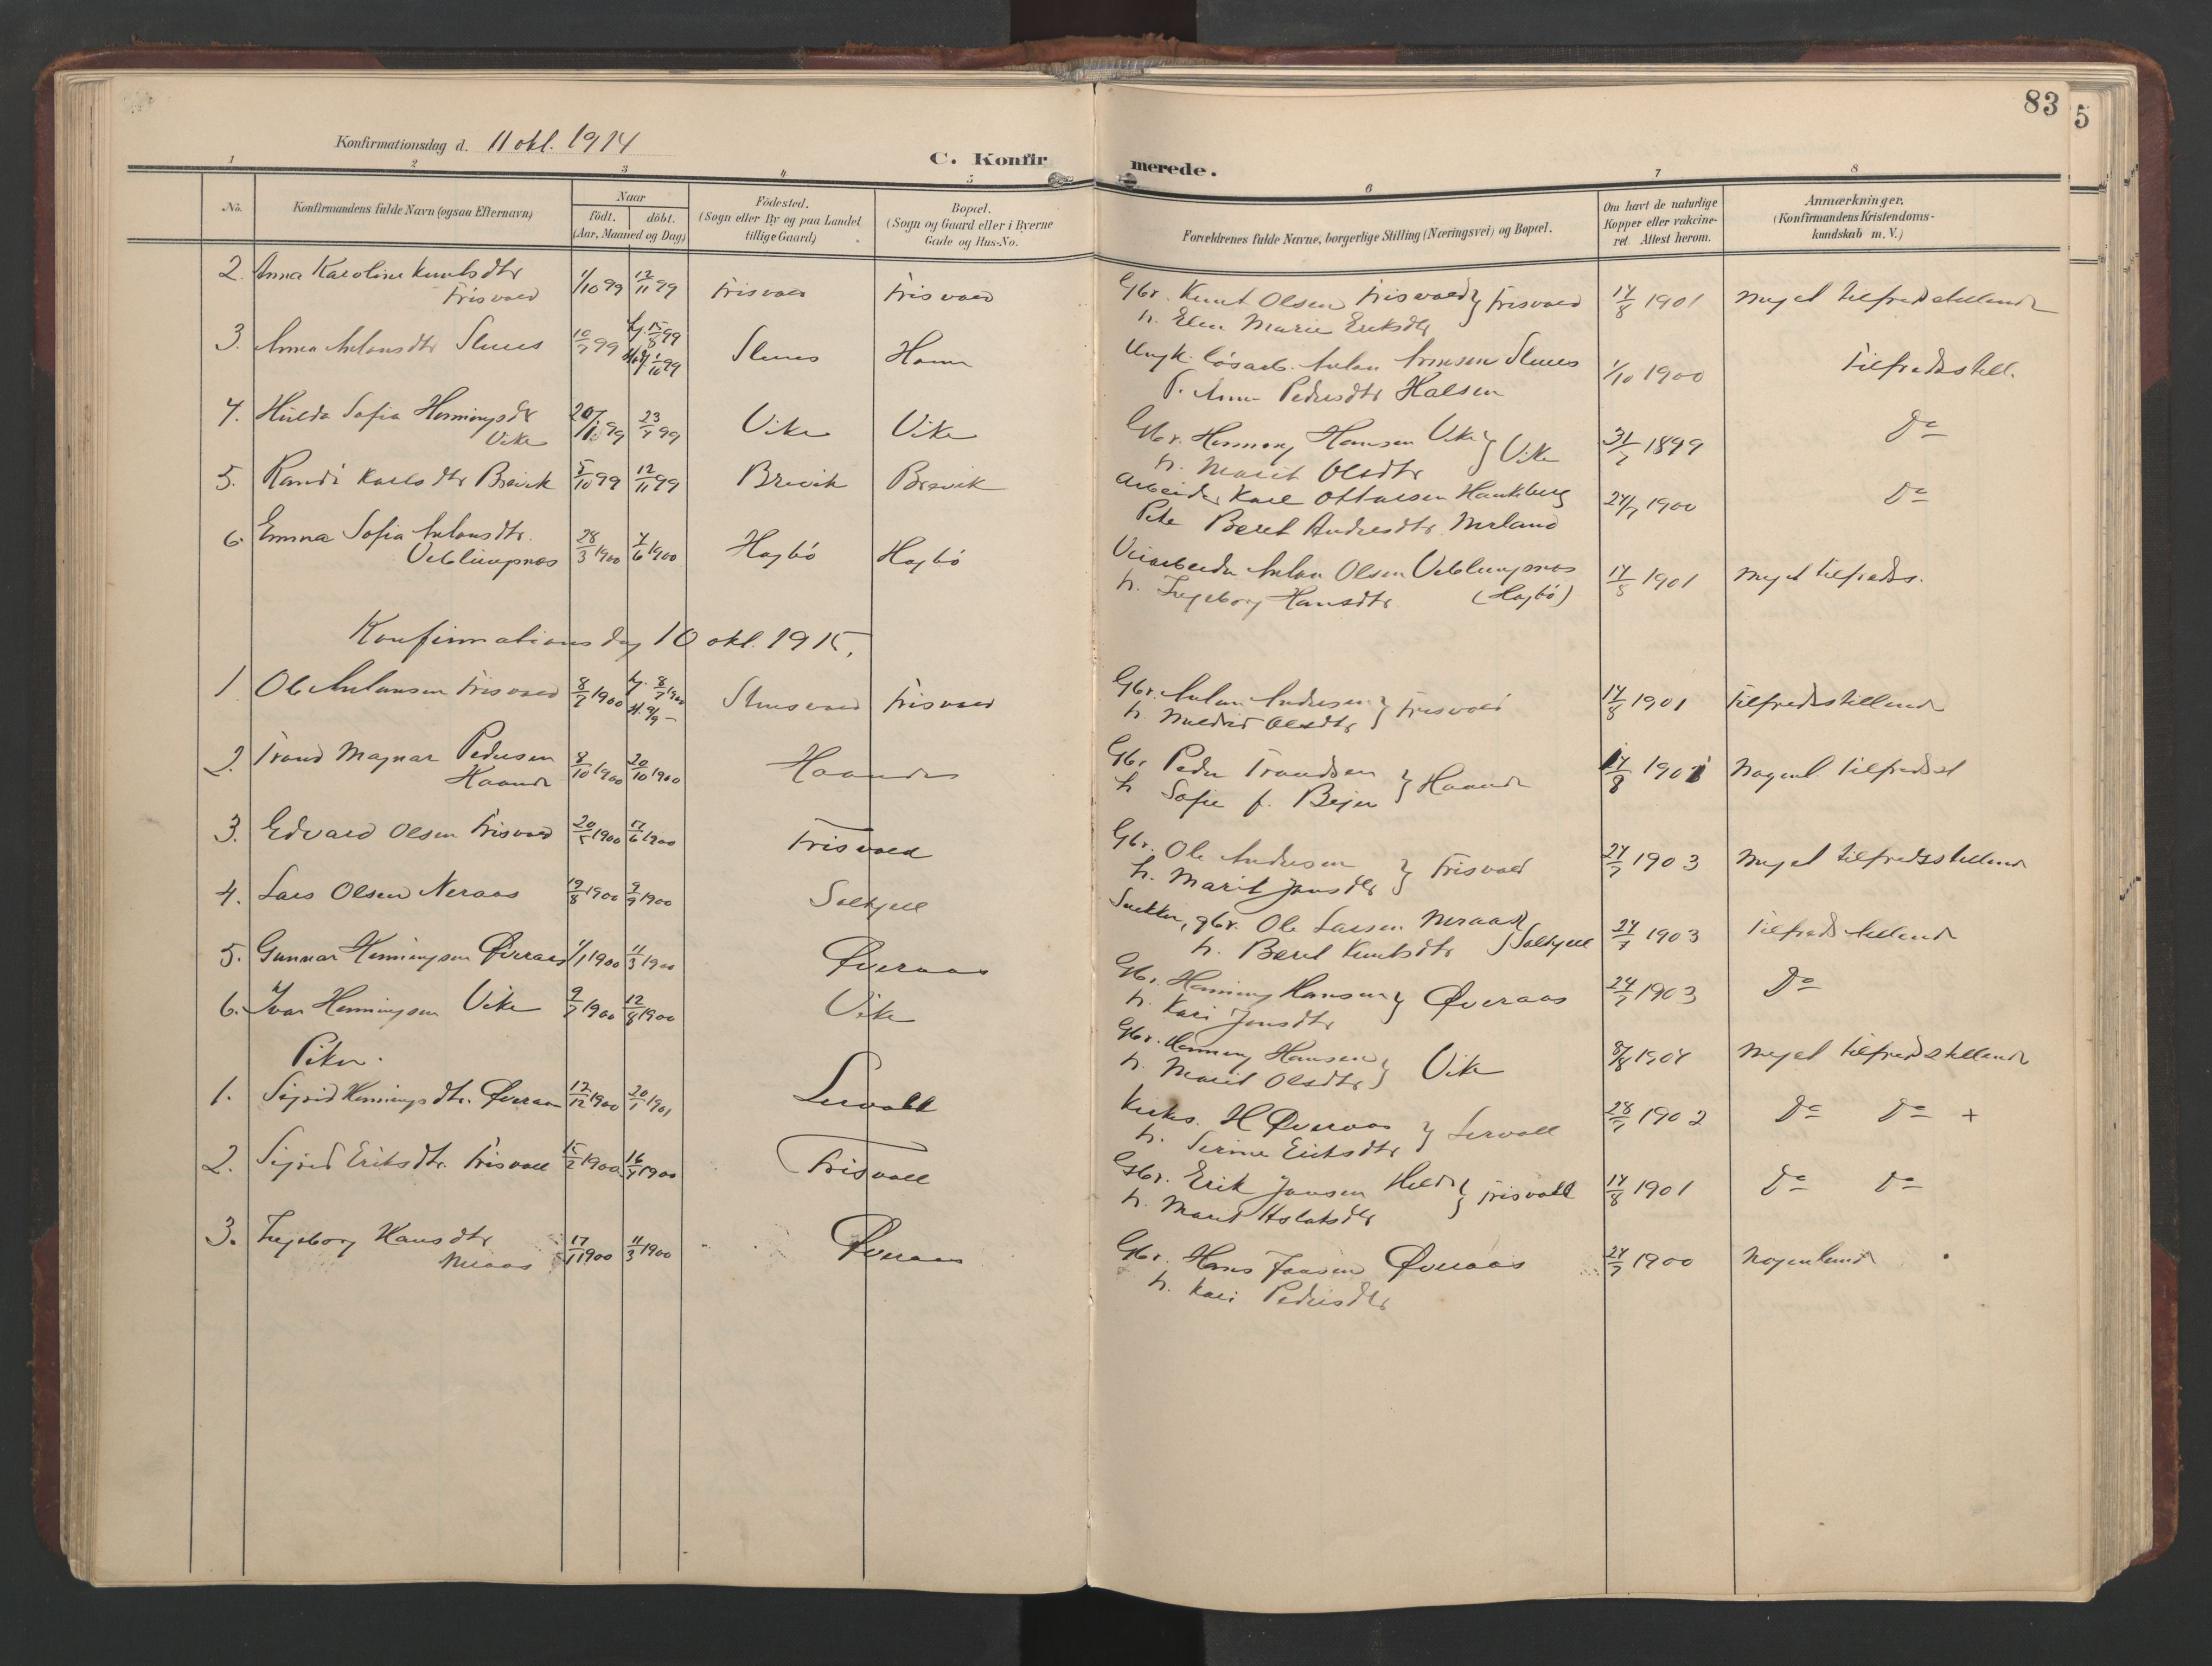 83
5
Konfirmationsdag d. 11 okt. 1914
C. Konfirmerede.
1 2 3 4 5 6 7 8
No.
Konfirmandens fulde Navn (ogsaa Efternavn)
Naar
födt. döbt.
(Aar, Maaned og Dag)
Födested.
(Sogn eller By og paa Landet
tillige Gaard)
Bopæl.
(Sogn og Gaard eller i Byerne
Gade og Hus-No.
Forældrenes fulde Navne, borgerlige Stilling (Næringsvei) og Bopæl.
Om havt de naturlige
Kopper eller vakcine-
ret. Attest herom.
Anmærkninger.
(Konfirmandens Kristendoms-
kundskab m. V.)
2. Anna Karoline Knutsdtr
Frisvold 1/10 99 12/11 99 Frisvold Frisvold
Gbr. Knut Olsen Frisvold } Frisvold 14/8 1901 Meget tilfredsstillende
h. Elen Marie Eriksdtr
3. Anna Antonsdtr 10/7 99 hj. 15/8 99
1/10 99
Ungk. løsarb. Anton 1/10 1900 Tilfredsstill.
P. Anne Pedersdtr Halsen
4. Hulda Sofia Hemingsdtr
Vike 99 23/4 99 Vike Vike
Gbr. Hemming Hansen Vike } Vike 31/7 1899 Do
h. Marit Olsdtr
5. Randi Karlsdtr Brevik 5/10 99 12/11 99 Brevik Brevik
Arbeider Karl Ottarsen 24/7 1900 Do
Pike Beret Andersdtr
6. Emma Sofia Antonsdtr.
Veblungsnes 28/3 1900 4/6 1900 Hagbö Hagbö
Veiarbeider Anton Olsen Veblungsnes 14/8 1901 Meget tilfredss.
h. Ingeborg Hansdtr. (Hagbö)
Konfirmationsdag 10 okt. 1915.
1 Ole Antonsen Frisvold 8/7 1900 hj. 8/7 1900
9/9 –
Frisvold
Gbr. Anton Andersen } Frisvold 14/8 1901 Tilfredsstillende
h Olsdtr
2. Trond Magnar Pedersen
Haande 8/10 1900 20/10 1900 Haande
Gbr Peder Trondsen } Haande 14/8 1901 Nogenl. tilfredsst
h Sofie f. Beyer
3. Edvard Olsen Frisvold 20/5 1900 17/6 1900 Frisvold
Gbr. Ole Andersen } Frisvold 24/7 1903 Meget tilfredsstillende
h. Marit Jonsdtr
4. Lars Olsen Neraas 19/8 1900 9/9 1900 Soltjell
Snekker, gbr. Ole Larsen Neraas } Soltjell 24/7 1903 Tilfredsstillende
h. Beret Knutsdtr
5. Gunnar Hemingsen Øveraas 1/1 1900 11/3 1900 Øveraas
Gbr. Heming Hansen } Øveraas 24/7 1903 Do
h. Kari Jonsdtr
6. Ivar Hemmingsen Vike 9/7 1900 12/8 1900 Vike
Gbr. Hemming Hansen } Vike 8/8 1904 Meget tilfredsstillende
h. Marit Olsdtr
Piker.
1. Sigrid Hemingsdtr. Øveraas 12/12 1900 20/1 1901 Lervoll
Kirks. H Øveraas } Lervoll 28/7 1902 Do Do +
h. Serine Eriksdtr
2. Sigrid Eriksdtr. Frisvoll 15/2 1900 16/4 1900 Frisvoll
Gbr. Erik Jonsen } Frisvoll 14/8 1901 Do Do
h. Marit Aslaksdtr
3. Ingeborg Hansdtr
Neraas 17/1 1900 11/3 1900 Øveraas
Gbr. Hans Jonsen Øveraas 24/7 1900 Nogenlunde
h. Kari Pedersdtr